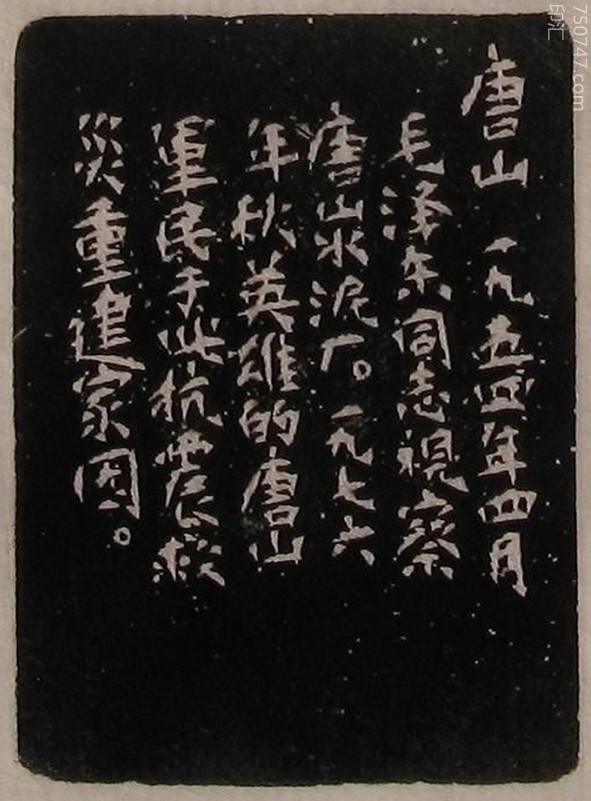 唐山 一九五四年四月
毛泽东同志視察
唐山水泥厂。一九七六
年秋英雄的唐山
軍民于此抗震救
災重建家园。
印汇
750747.com